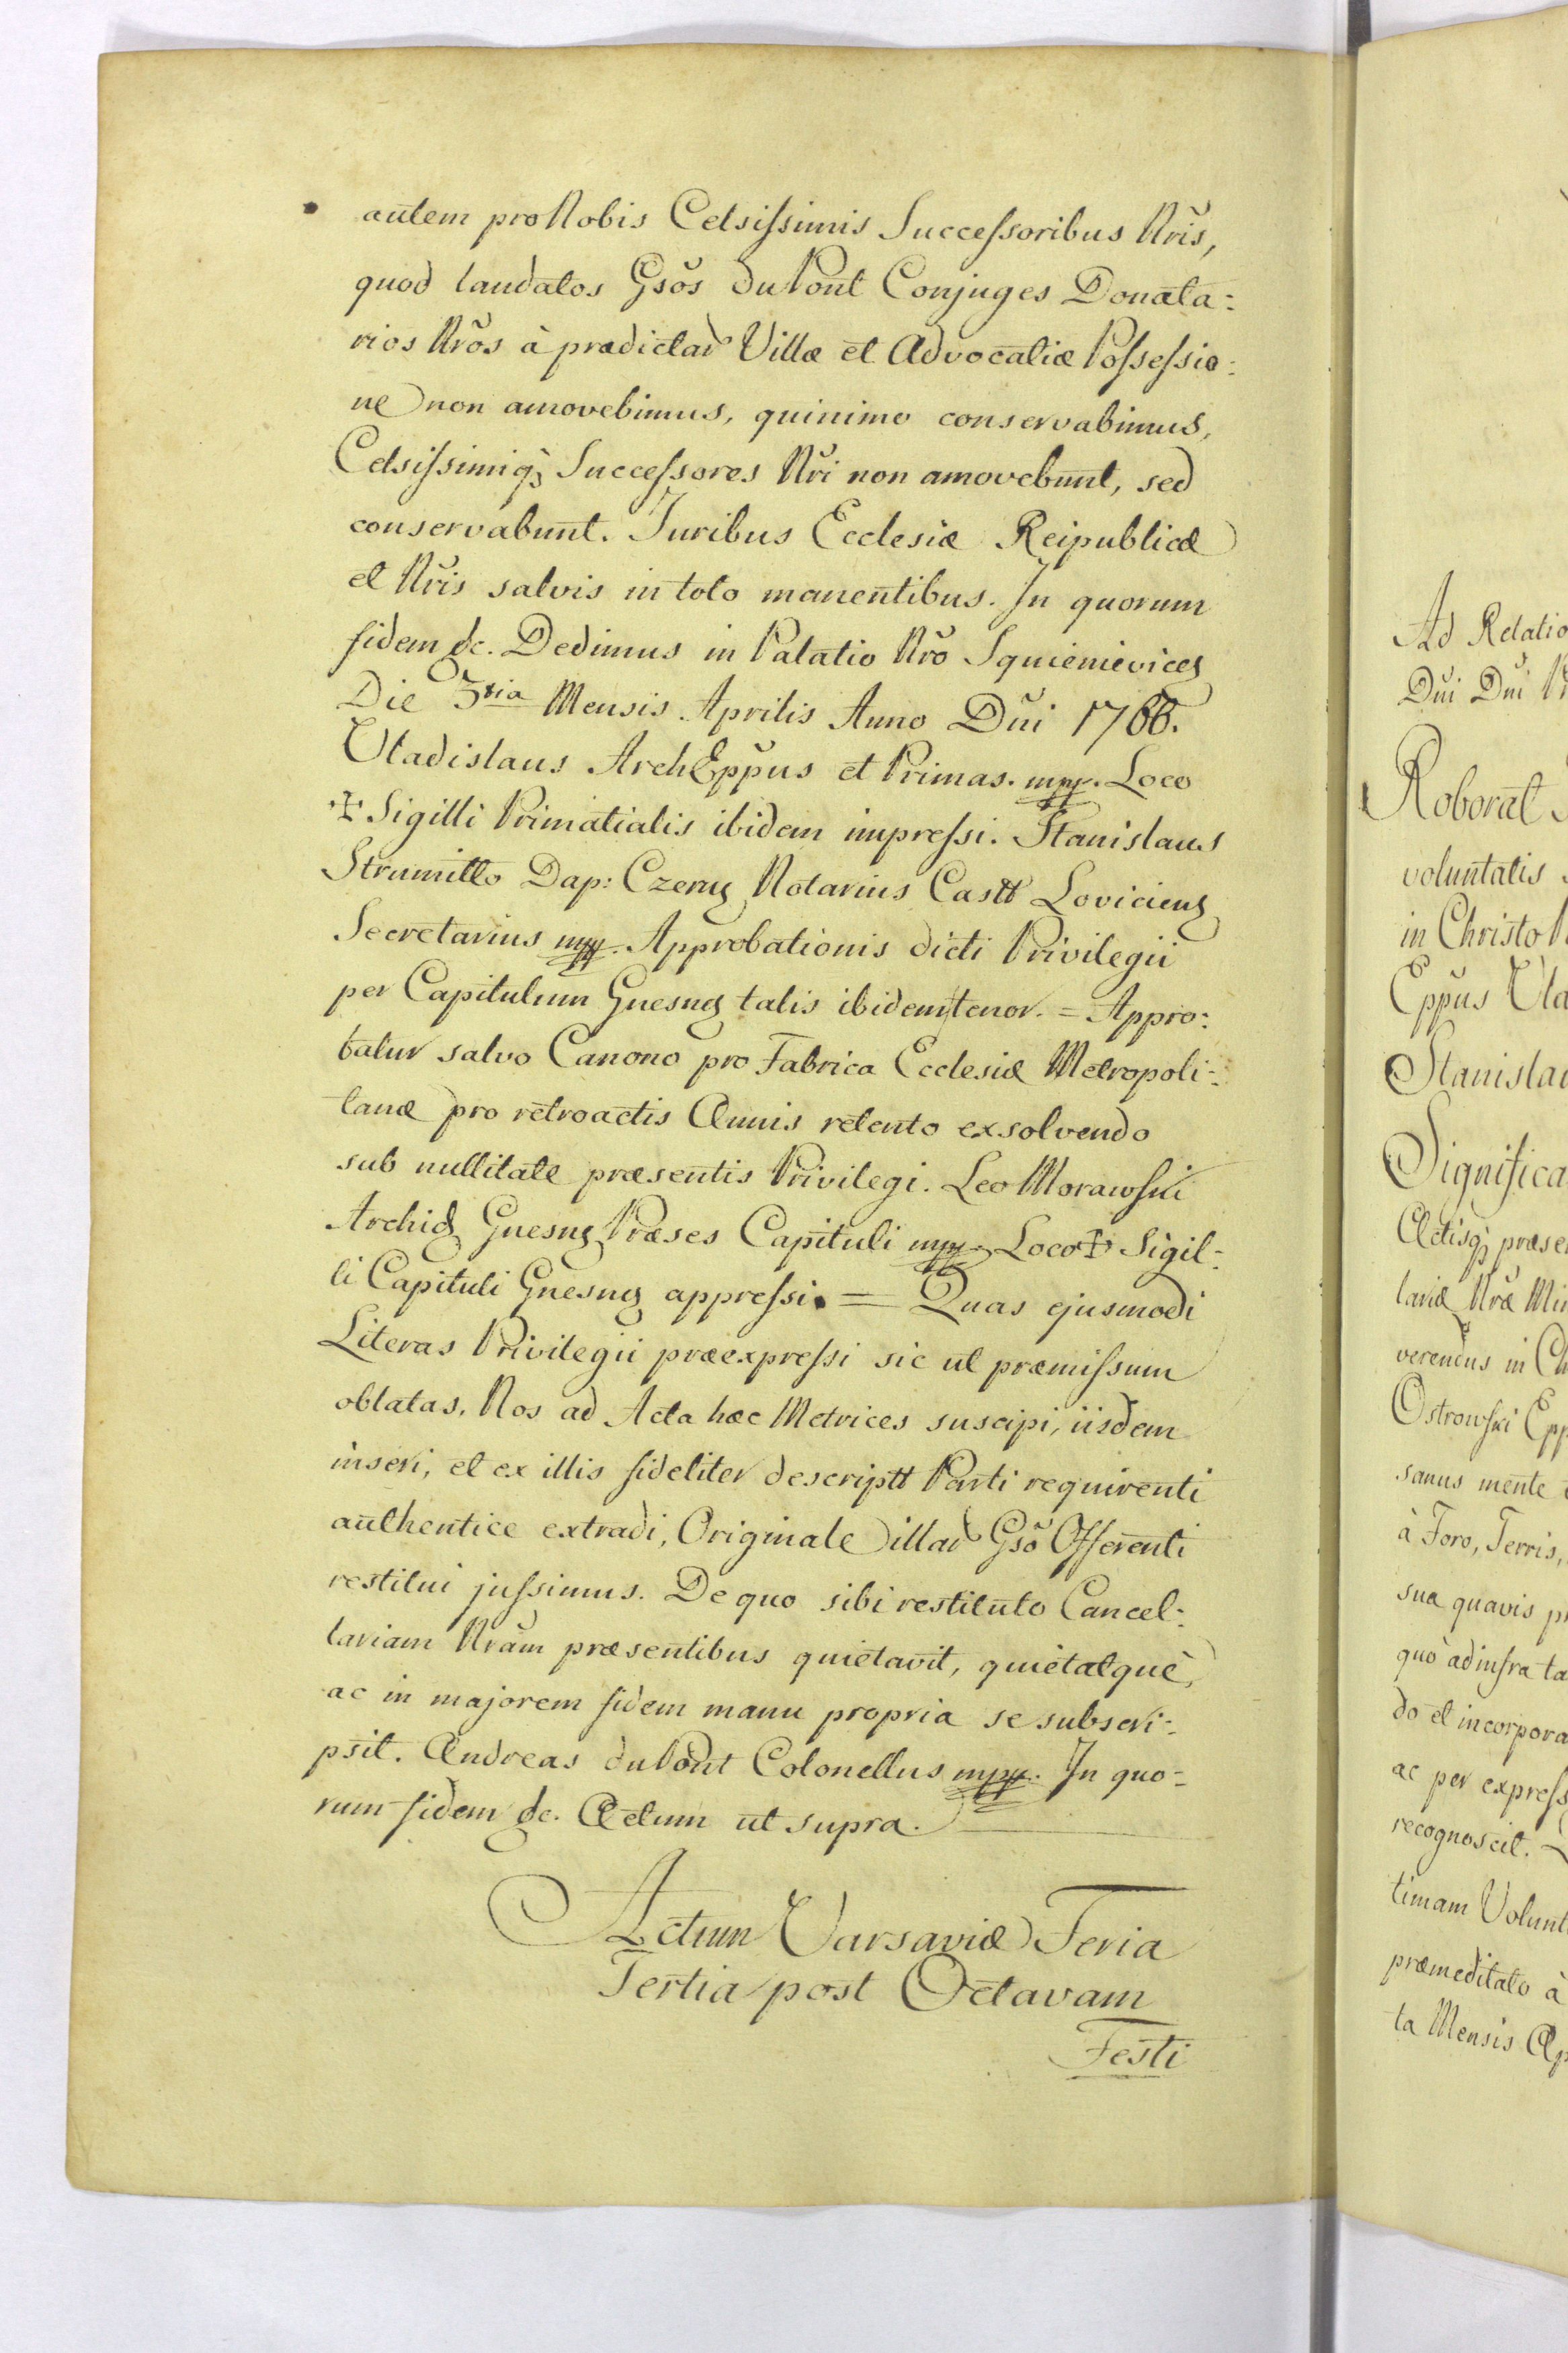 autem pro Nobis Celsissimis Successoribus Nr̃is,
quod laudatos Gsõs du Pont Conjuges Donata:
rios Nr̃os à prædictar Villæ et Advocatiæ Possessio:
ne non amovebimus, quinimo conservabimus,
Celsissimiq; Successores Nr̃i non amovebunt, sed
conservabunt. Juribus Ecclesiæ Reipublicæ
et Nr̃is salvis in toto manentibus. In quorum
fidem &c. Dedimus in Palatio Nr̃o Squieniev̇iceɳ
Die 3tia Mensis Aprilis Anno Dn̄i 1766.
Vladislaus ArchEpp̃us et Primas. mpp. Loco
✠ Sigilli Primatialis ibidem impressi. Stanislaus
Strumiłło Dap: Czerɳ Notarius Castt Lovicienɳ
Secretarius mpp. Approbationis dicti Privilegii
per Capitulum Gnesnɳ talis ibidem tenor. = Appro:
batur salvo Canono pro Fabrica Ecclesiæ Metropoli:
tanæ pro retroactis Annis retento exsolvendo
sub nullitate præsentis Privilegi. Leo Morawski
Archid Gnesnɳ Præses Capituli mpp. Loco ✠ Sigil:
li Capituli Gnesnɳ appressi. = Quas ejusmodi
Literas Privilegii præexpressi sic ut præmissum
oblatas, Nos ad Acta hæc Metrices suscipi, iisdem
inseri, et ex illis fideliter descriptt Parti requirenti
authentice extradi, Originale illar Gsõ Offerenti
restitui jussimus. De quo sibi restituto Cancel:
lariam Nr̃am præsentibus quietavit, quietatque,
ac in majorem fidem manu propria se subscri:
psit. Andreas du Pont Colonellus mpp. In quo:
rum fidem &c. Actum ut supra.
Actum Varsaviæ Feria
Tertia post Octavam
Festi
Ad Relatio
Dn̄i Dn̄i
Roborat
voluntatis
in Christo
Epp̃us Vla
Stanislau
Significa
Actisq; præse
lariæ Nr̃æ Mi
verendus in Ch
Ostrowski Epp
sanus mente
à Foro, Terris,
sua quavis
quò ad infra ta
do et incorpora
ac per express
recognoscit.
timam Volunt
præmeditato à
ta Mensis Ap